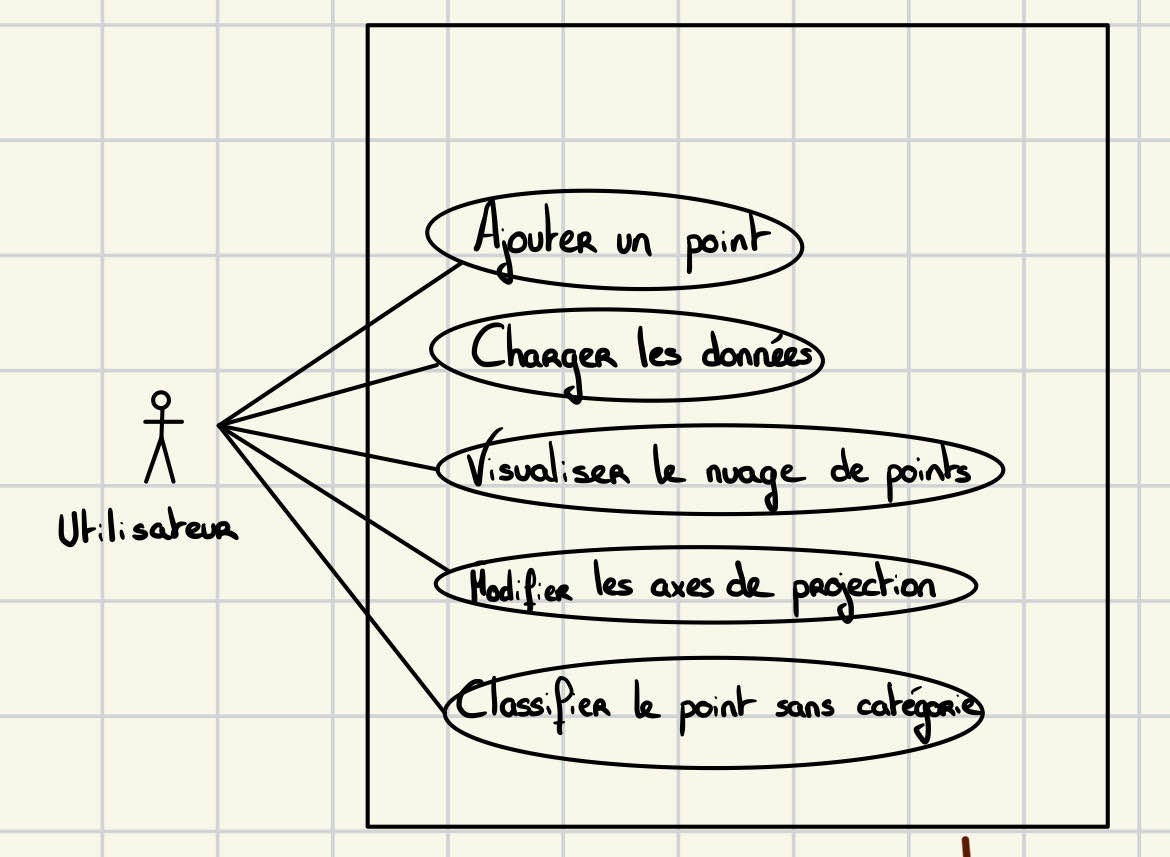 Ajouter un point
Charger les données
Visualiser le nuage de points
Utilisateur
Modifier les axes de projection
Classifier le point sans catégorie